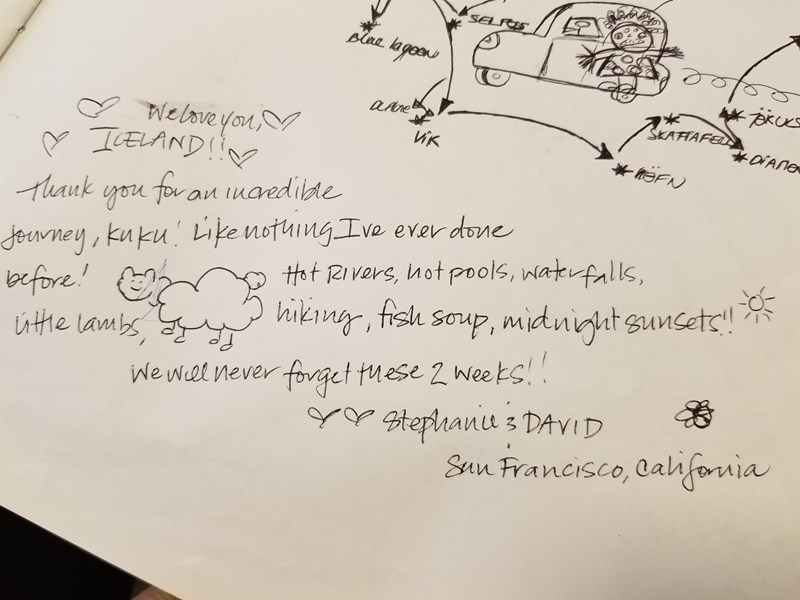 SELFOSS
Blue lagoon
VIK
SKAFTAFELL
JÖKULS
HÖFN
DIAMON
We love you,
ICELAND!!
Thank you for an incredible
Journey, KuKu! Like nothing I've ever done
before! Hot Rivers, hot pools, waterfalls,
little lambs, hiking, fish soup, midnight sunsets!!
We will never forget these 2 weeks!!
Stephanie & DAVID
San Francisco, California